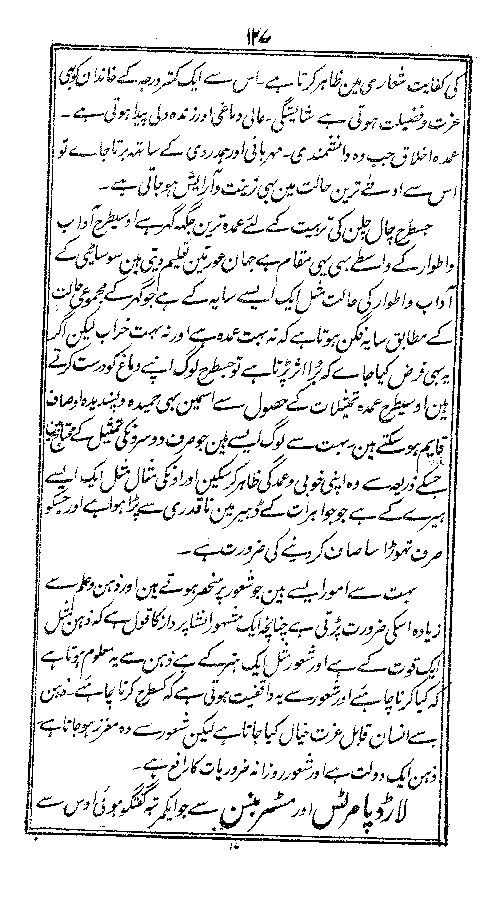 ۱۲۷
کی کفایت شعاری مین ظاہر کرتا ہے۔ اس سے ایک کمتر درجہ کے خاندان کو بھی
عزت و فضیلت ہوتی ہے شائستگی۔ عالی دماغی اور زندہ دلی پیدا ہوتی ہے۔
عمدہ اخلاق جب وہ دانشمندی۔ مہربانی اور ہمدردی کے ساتھ برتا جاے تو
اس سے ادنے ترین حالت مین بھی زینت و آرایش ہو جاتی ہے۔
جسطرح چال چلن کی تربیت کے لئے عمدہ ترین جگہ گھر ہے اوسیطرح آداب
واطوار کے واسطے بھی یہی مقام ہے جہان عورتین تعلیم دیتی ہین سوسائٹی کے
آداب واطوار کی حالت مثل ایک ایسے سایہ کے ہے جو گھر کے مجموعی حالت
کے مطابق سایہ فگن ہوتا ہے کہ نہ بہت عمدہ ہے اور نہ بہت خراب لیکن اگر
یہ بھی فرض کیا جاے کہ بُرا اثر پڑتا ہے تو جسطرح لوگ اپنے دماغ کو درست کرتے
ہین اوسیطرح عمدہ تخیلات کے حصول سے اسمین بھی حمیدہ و پسندیدہ اوصاف
قایم ہو سکتے ہین۔ بہت سے لوگ ایسے ہین جو صرف دوسرونکی تمثیل کے محتاج ہین
جسکے ذریعہ سے وہ اپنی خوبی وعمدگی ظاہر کر سکین اور اونکی مثال مثل ایک ایسے
ہیرے کے ہے جو جواہرات کے ڈھیر مین ناقدری سے پڑا ہوا ہے اور جسکو
صرف تھوڑا سا صاف کر دینے کی ضرورت ہے۔
بہت سے امور ایسے ہین جو شعور پر منحصر ہوتے ہین اور ذہن وعلم سے
زیادہ اسکی ضرورت پڑتی ہے چنانچہ ایک مشہور انشا پرداز کا قول ہے کہ ذہن مثل
ایک قوت کے ہے اور شعور مثل ایک ہنر کے ہے ذہن سے یہ معلوم ہوتا ہے
کہ کیا کرنا چاہئے اور شعور سے یہ واقفیت ہوتی ہے کہ کسطرح کرنا چاہئے۔ ذہن
سے انسان قابل عزت خیال کیا جاتا ہے لیکن شعور سے وہ معزز ہو جاتا ہے
ذہن ایک دولت ہے اور شعور روزانہ ضروریات کا رافع ہے۔
لارڈ پامرٹس اور مسٹر بہنس سے جو ایکمرتبہ گفتگو ہوئی اوس سے